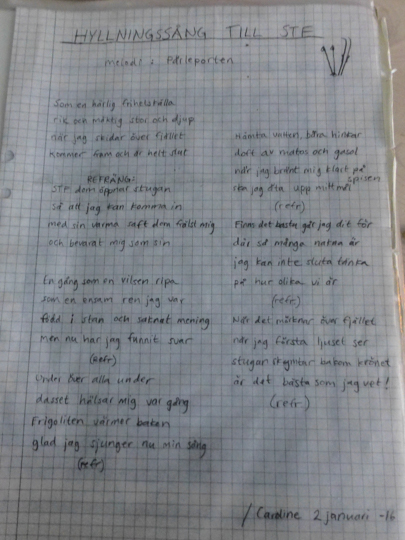 HYLLNINGSSÅNG TILL STF
melodi: Pärleporten
Som en härlig frihetskälla
rik och mäktig stor och djup
när jag skidar över fjället
kommer fram och är helt slut
REFRÄNG:
STF dem öppnar stugan
så att jag kan komma in
med sin värma saft dem frälst mig
och bevarat mig som sin
En gång som en vilsen ripa
som en ensam ren jag var
född i stan och saknat mening
men nu har jag funnit svar
(refr)
Under över alla under
dasset hälsar mig var gång
Frigoliten värmer baken
glad jag sjunger nu min sång
(refr)
Hämta vatten, bära hinkar
doft av matos och gasol
när jag bränt mig klart på spisen
ska jag äta upp mitt mål
(refr)
Finns det bastu går jag dit för
där så många nakna är
jag kan inte sluta tänka
på hur olika vi är
(refr)
När det mörknar över fjället
när jag första ljuset ser
stugan skymtar bakom krönet
är det bästa som jag vet!
(refr.)
/ Caroline 2 januari -16